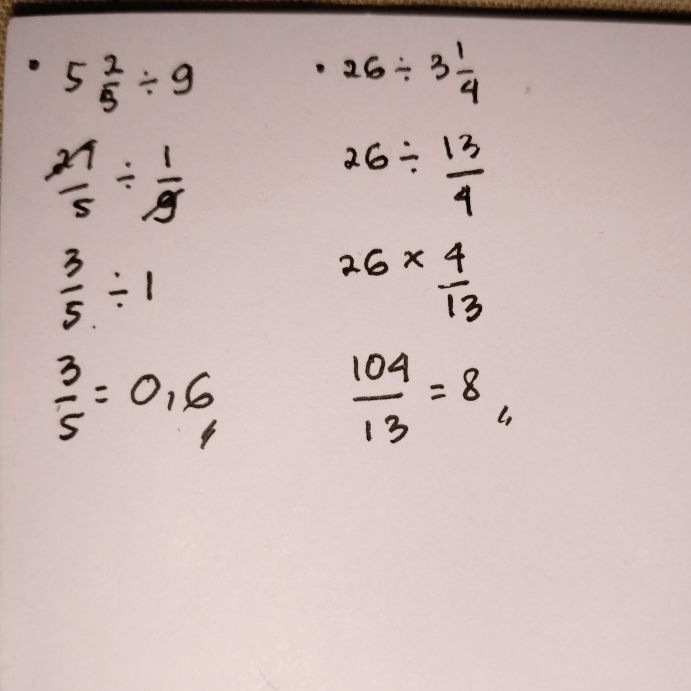 • 5 2/5 ÷ 9
27/5 ÷ 1/9
3/5 ÷ 1
3/5 = 0,6
• 26 ÷ 3 1/4
26 ÷ 13/4
26 × 4/13
104/13 = 8